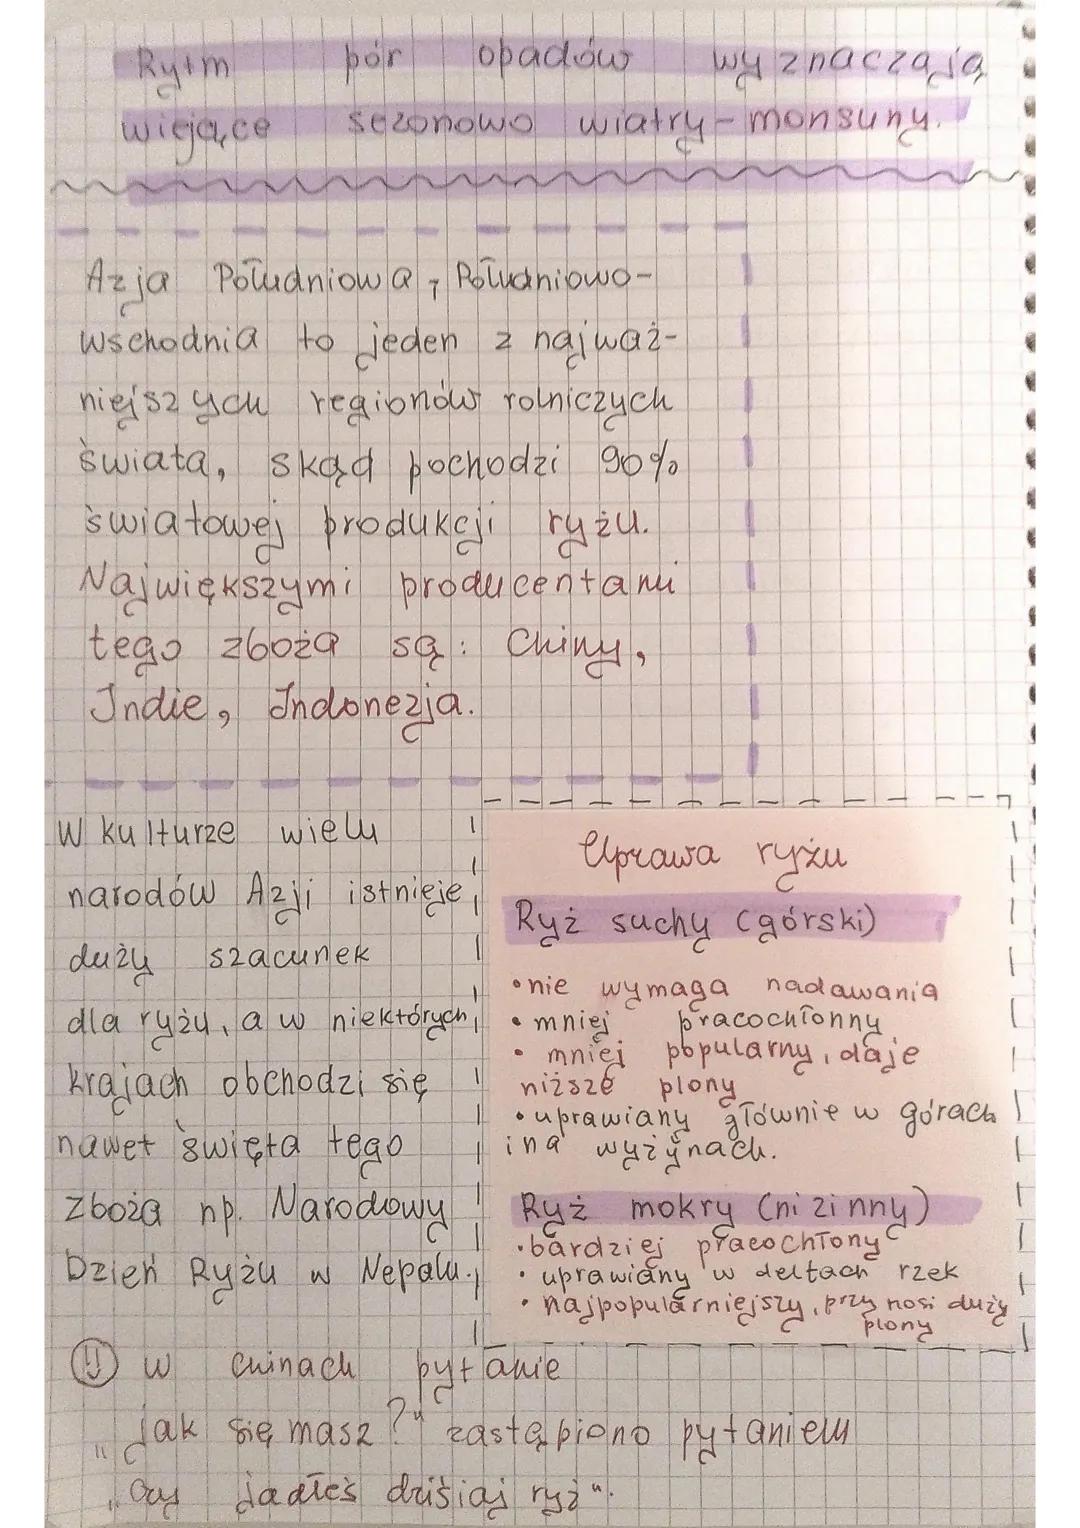 Rytm pór opadów wyznaczają
wiejące sezonowo wiatry - monsuny.
Azja Południowa, Południowo-
wschodnia to jeden z najważ-
niejszych regionów rolniczych
świata, skąd pochodzi 90%
światowej produkcji ryżu.
Największymi producentami
tego zboża są: Chiny,
Indie, Indonezja.
W kulturze wielu
narodów Azji istnieje
duży szacunek
dla ryżu, a w niektórych
krajach obchodzi się
nawet święta tego
zboża np. Narodowy
Dzień Ryżu w Nepalu.
Uprawa ryżu
Ryż suchy (górski)
• nie wymaga nadawania
• mniej pracochłonny
• mniej popularny, daje
niższe plony
• uprawiany głównie w górach
i na wyżynach.
Ryż mokry (nizinny)
• bardziej pracochłony
• uprawiany w deltach rzek
• najpopularniejszy, przynosi duży
plony
w chinach pytanie
„jak się masz?" zastąpiono pytaniem
„Czy jadłeś dzisiaj ryż".